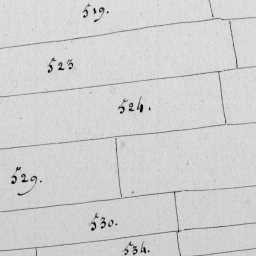 519.
523
524.
529.
530.
534.